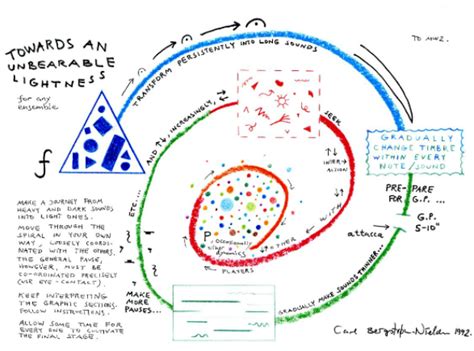 TOWARDS AN
UNBEARABLE
LIGHTNESS
for any
ensemble
f
TRANSFORM PERSISTENTLY INTO LONG SOUNDS
TO MNZ.
GRADUALLY
CHANGE TIMBRE
WITHIN EVERY
NOTE/SOUND
PRE-PARE
FOR G.P. ...
G.P.
5-10"
attacca
GRADUALLY MAKE SOUNDS THINNER...
MAKE
MORE
PAUSES...
ETC...
AND ↑↓, INCREASINGLY,
SEEK
INTER-
ACTION
WITH
OTHER
PLAYERS
P, OCCASIONALLY
other
dynamics
MAKE A JOURNEY FROM
HEAVY AND DARK SOUNDS
INTO LIGHT ONES.
MOVE THROUGH THE
SPIRAL IN YOUR OWN
WAY, LOOSELY COORDI-
NATED WITH THE OTHERS.
THE GENERAL PAUSE,
HOWEVER, MUST BE
CO-ORDINATED PRECISELY
(USE EYE-CONTACT).
KEEP INTERPRETING
THE GRAPHIC SECTIONS.
FOLLOW INSTRUCTIONS.
ALLOW SOME TIME FOR
EVERY ONE TO CULTIVATE
THE FINAL STAGE.
Carl Bergstrøm-Nielsen 1992.